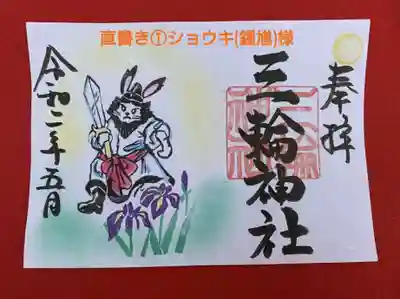 直書き①ショウキ(鍾馗)様
奉拝
三輪神社
令和二年五月